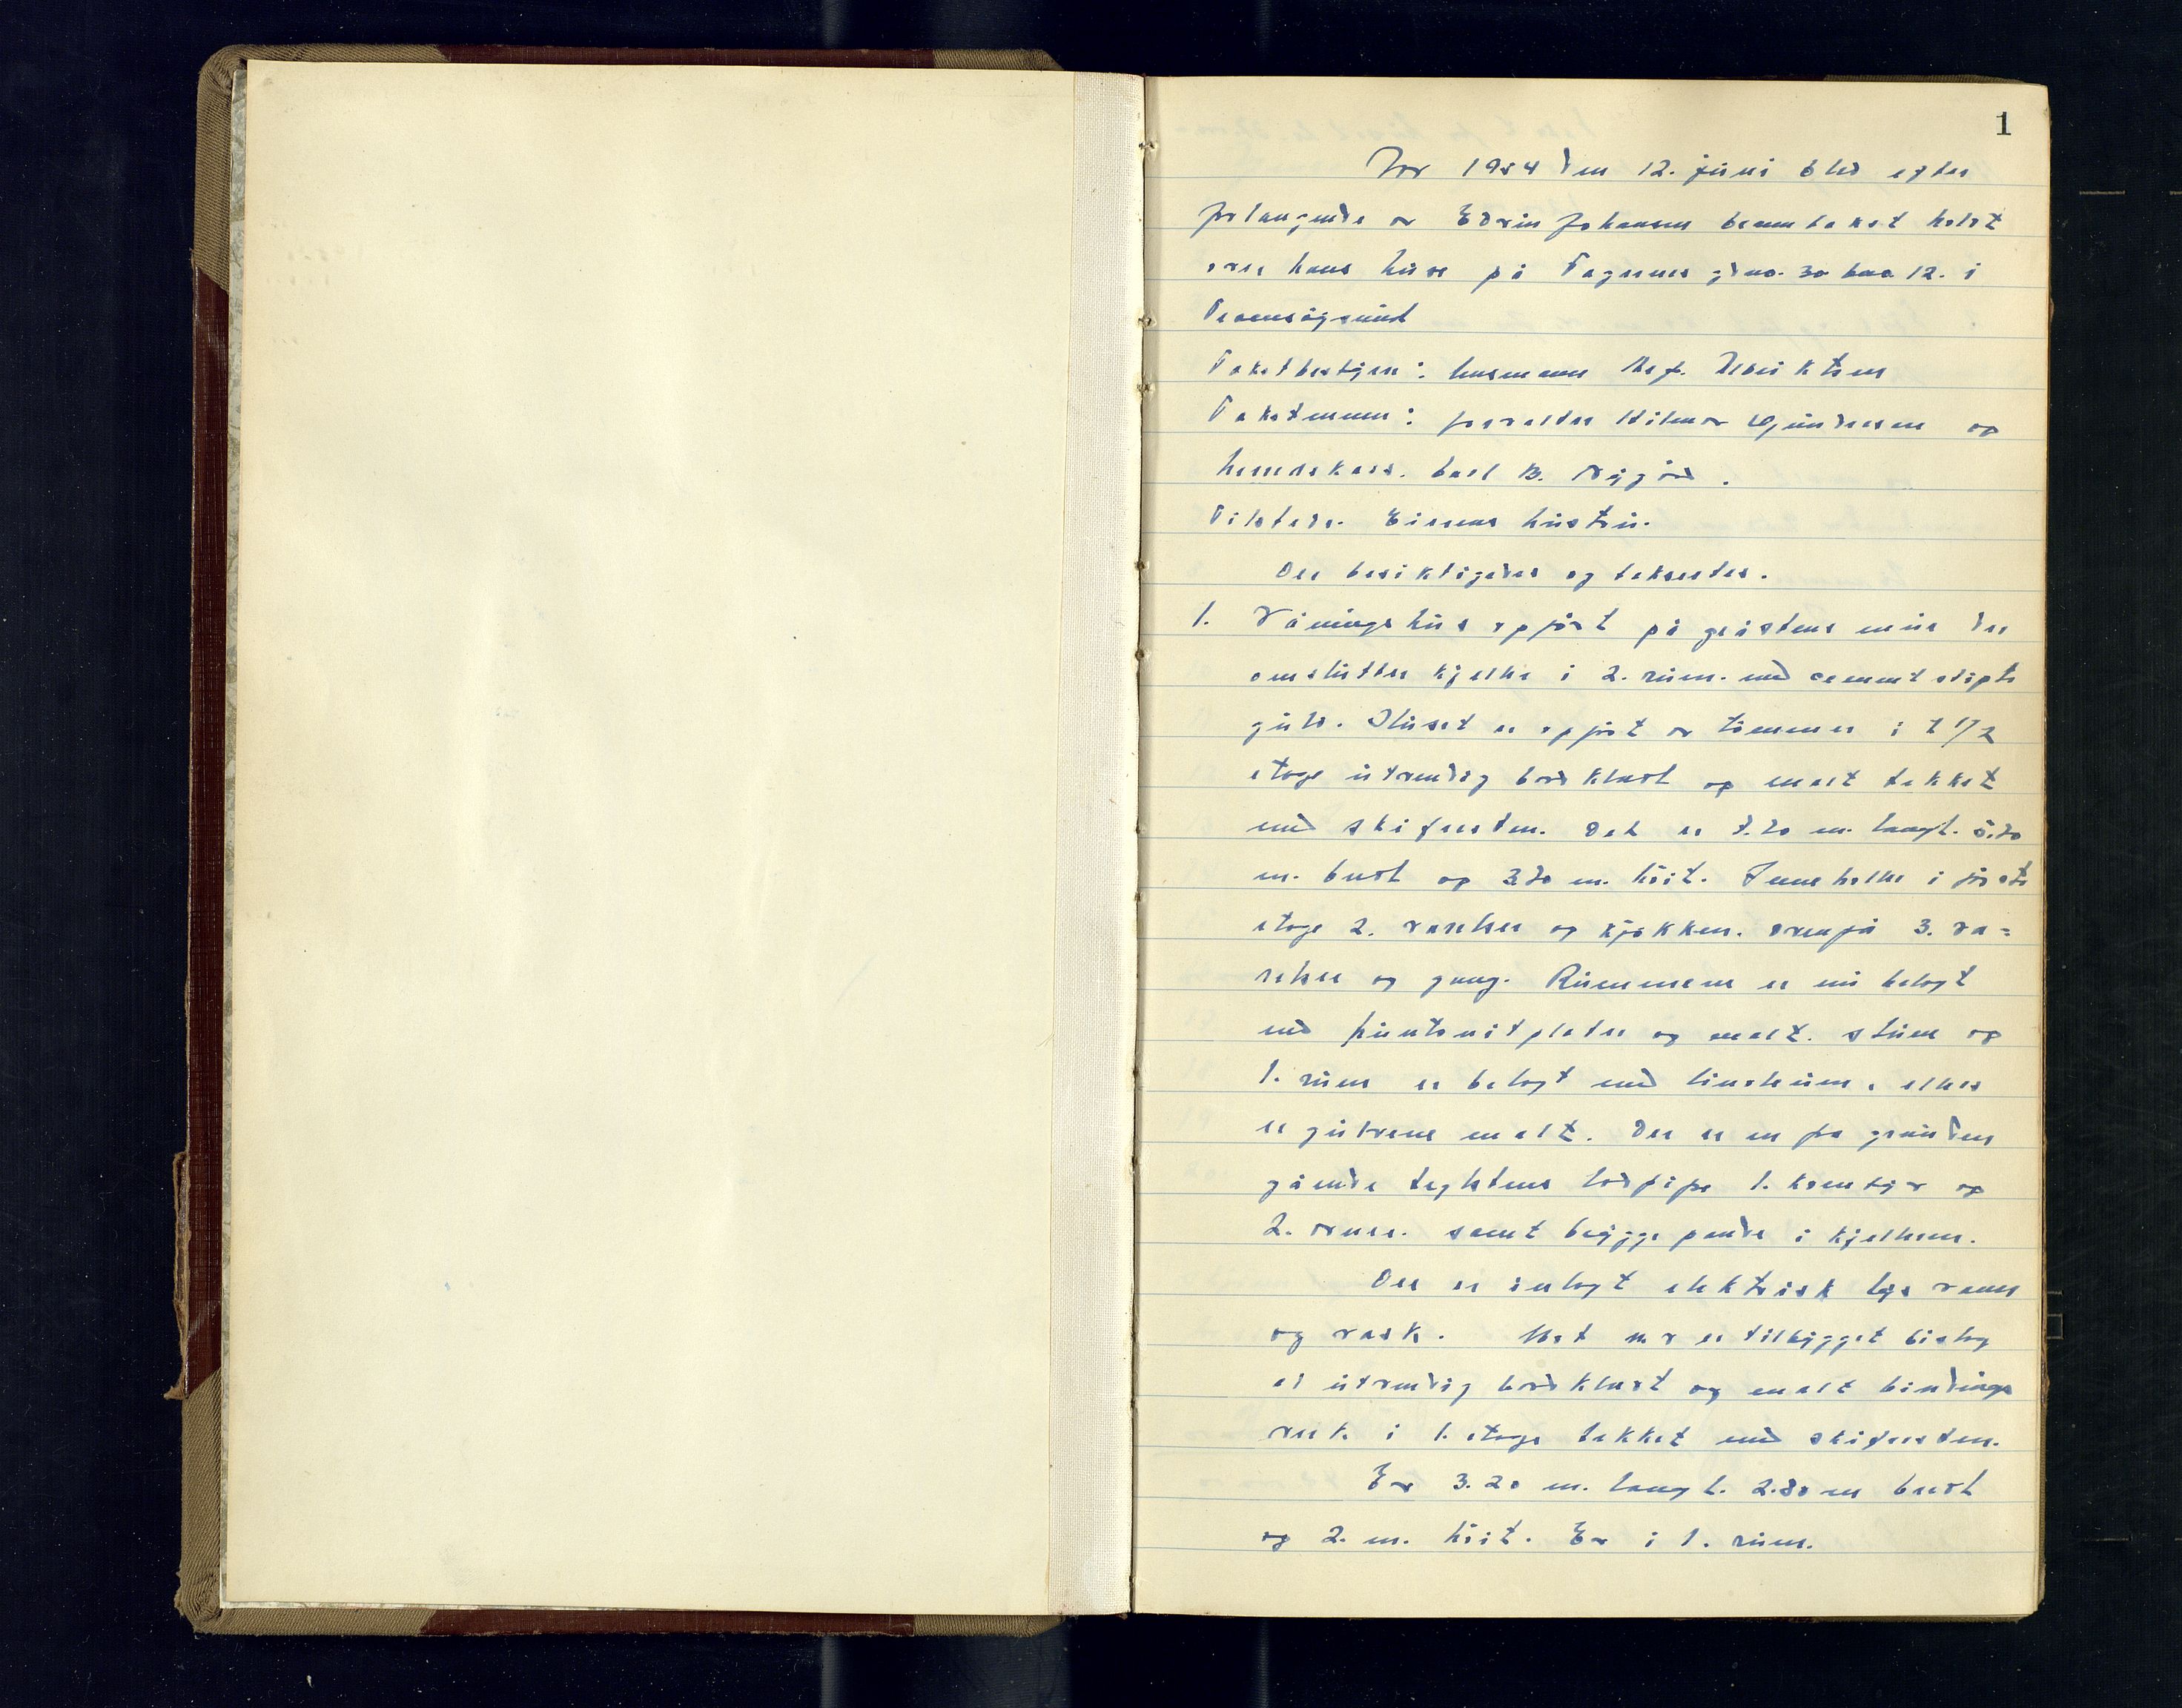 1
År 1954 den 12. juni blev efter
forlangende av Edvin Johansen branntakst holdt
over hans huse på Fagernes gdno. 30 bno 12. i
Tromsøysund
Takstbestyrer: lensmann
Takstmenn: forvalter Hilmar Gundersen og
herredskass. Carl B. Nygård.
Tilstede. Eierens hustru.
Der besiktigedes og taksertes.
1. Våningshus opført på gråstens mur der
omslutter kjeller i 2. rum. med cement støpte
gulv. Huset er opført av tømmer i 1 1/2
etage utvendig bordklædt og malt tekket
med skifersten. Det er 7.70 m. langt. 5.70
m. bredt og 3.70 m. høit. Inneholder i første
etage 2. værelser og kjøkken. ovenpå 3. væ=
relser og gang. Rummene er nu belagt
med huntonitplater og malt. stuen og
1. rum er belagt med linoleum. ellers
er gulvene malt. Der er en fra grunden
gående teglstens lodpipe 1. komfyr og
2. ovner. samt bryggepande i kjelleren.
Der er inlagt elektrisk lys vann
og vask. Mot n.v er tilbygget bislag
av utvendig bordklædt og malt bindings
verk i 1. etage tekket med skifersten.
Er 3.20 m. langt. 2.80 m bredt
og 2. m. høit. Er i 1. rum.